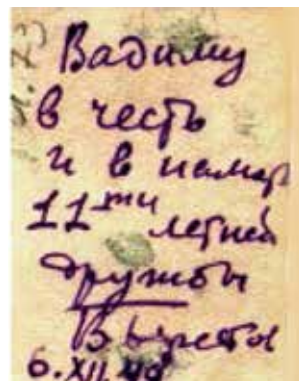 Вадиму
в честь
и в память
11ти летней
дружбы
6.XII.40